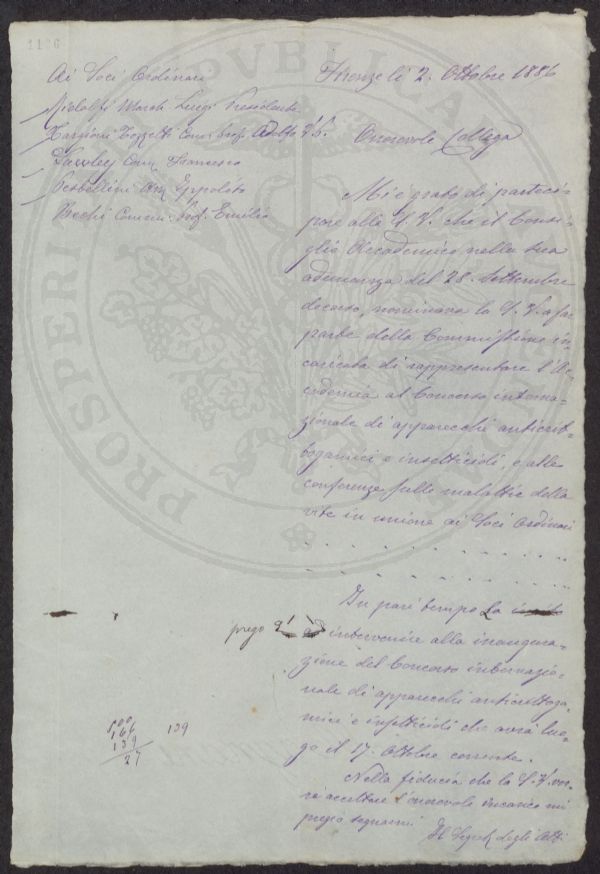 1126
Ai Soci Ordinari
Ridolfi March. Luigi Presidente
Targioni Tozzetti Comm. Prof. Adolfo V. P.
Comm. Francesco
Pestellini Ippolito
Bechi Comm. Prof. Emilio
Firenze li 2. Ottobre 1886
Onorevole Collega
Mi è grato di parteci-
pare alla S. V. che il Consi-
glio Accademico nella sua
adunanza del 28. Settembre
decorso, nominava la S. V. a far
parte della Commissione in-
caricata di rappresentare l'Ac-
cademia al Concorso interna-
zionale di apparecchi anticrit-
togamici e insetticidi, e alle
conferenze sulle malattie della
vite in unione ai Soci Ordinari
In pari tempo La invito
prego
ad intervenire alla inaugura-
zione del Concorso internazio-
nale di apparecchi anticrittoga-
mici e insetticidi che avrà luo-
go il 17. Ottobre corrente.
Nella fiducia che la S. V. vor-
rà accettare l'onorevole incarico mi
pregio segnarmi
Il Segret. degli Atti
166
139
27
139
PROSPERI
PVBLICAE